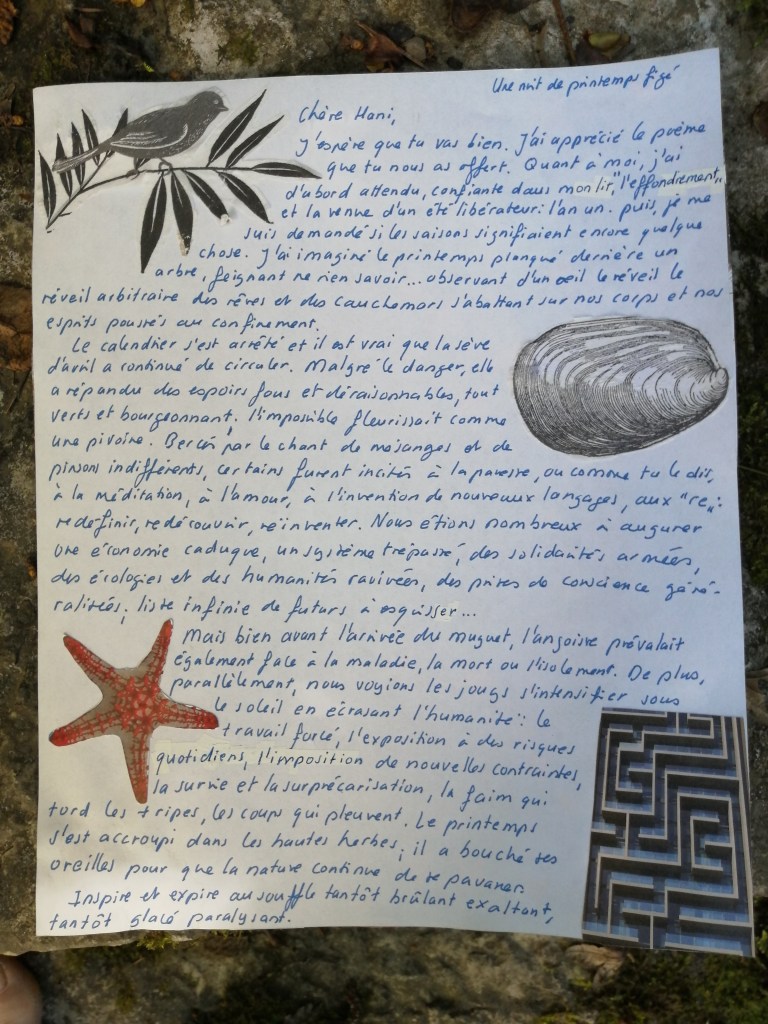 Une nuit de printemps figé
Chère Hani,
J'espère que tu vas bien. J'ai apprécié le poème
que tu nous as offert. Quant à moi, j'ai
d'abord attendu, confiante dans mon lit, "l'effondrement"
et la venue d'un été libérateur: l'an un. puis, je me
suis demandé si les saisons signifiaient encore quelque
chose. J'ai imaginé le printemps planqué derrière un
arbre, feignant ne rien savoir... observant d'un oeil le réveil le
réveil arbitraire des rêves et des cauchemars s'abattant sur nos corps et nos
esprits poussés au confinement.
Le calendrier s'est arrêté et il est vrai que la sève
d'avril a continué de circuler. Malgré le danger, elle
a répandu des espoirs fous et déraisonnables, tout
verts et bourgeonnant, l'impossible fleurissait comme
une pivoine. Bercés par le chant de mésanges et de
pinsons indifférents, certains furent incités à la paresse, ou comme tu le dis,
à la méditation, à l'amour, à l'invention de nouveaux langages, aux "re":
redéfinir, redécouvrir, réinventer. Nous étions nombreux à augurer
une économie caduque, un système trépassé, des solidarités armées,
des écologies et des humanités ravivées, des prises de conscience géné-
ralisées, liste infinie de futurs à esquisser...
Mais bien avant l'arrivée du muguet, l'angoisse prévalait
également face à la maladie, la mort ou l'isolement. De plus,
parallèlement, nous voyions les jougs s'intensifier sous
le soleil en écrasant l'humanité: le
travail forcé, l'exposition à des risques
quotidiens, l'imposition de nouvelles contraintes,
la survie et la surprécarisation, la faim qui
tord les tripes, les coups qui pleuvent. Le printemps
s'est accroupi dans les hautes herbes; il a bouché ses
oreilles pour que la nature continue de se pavaner.
Inspire et expire au souffle tantôt brûlant exaltant,
tantôt glacé paralysant.